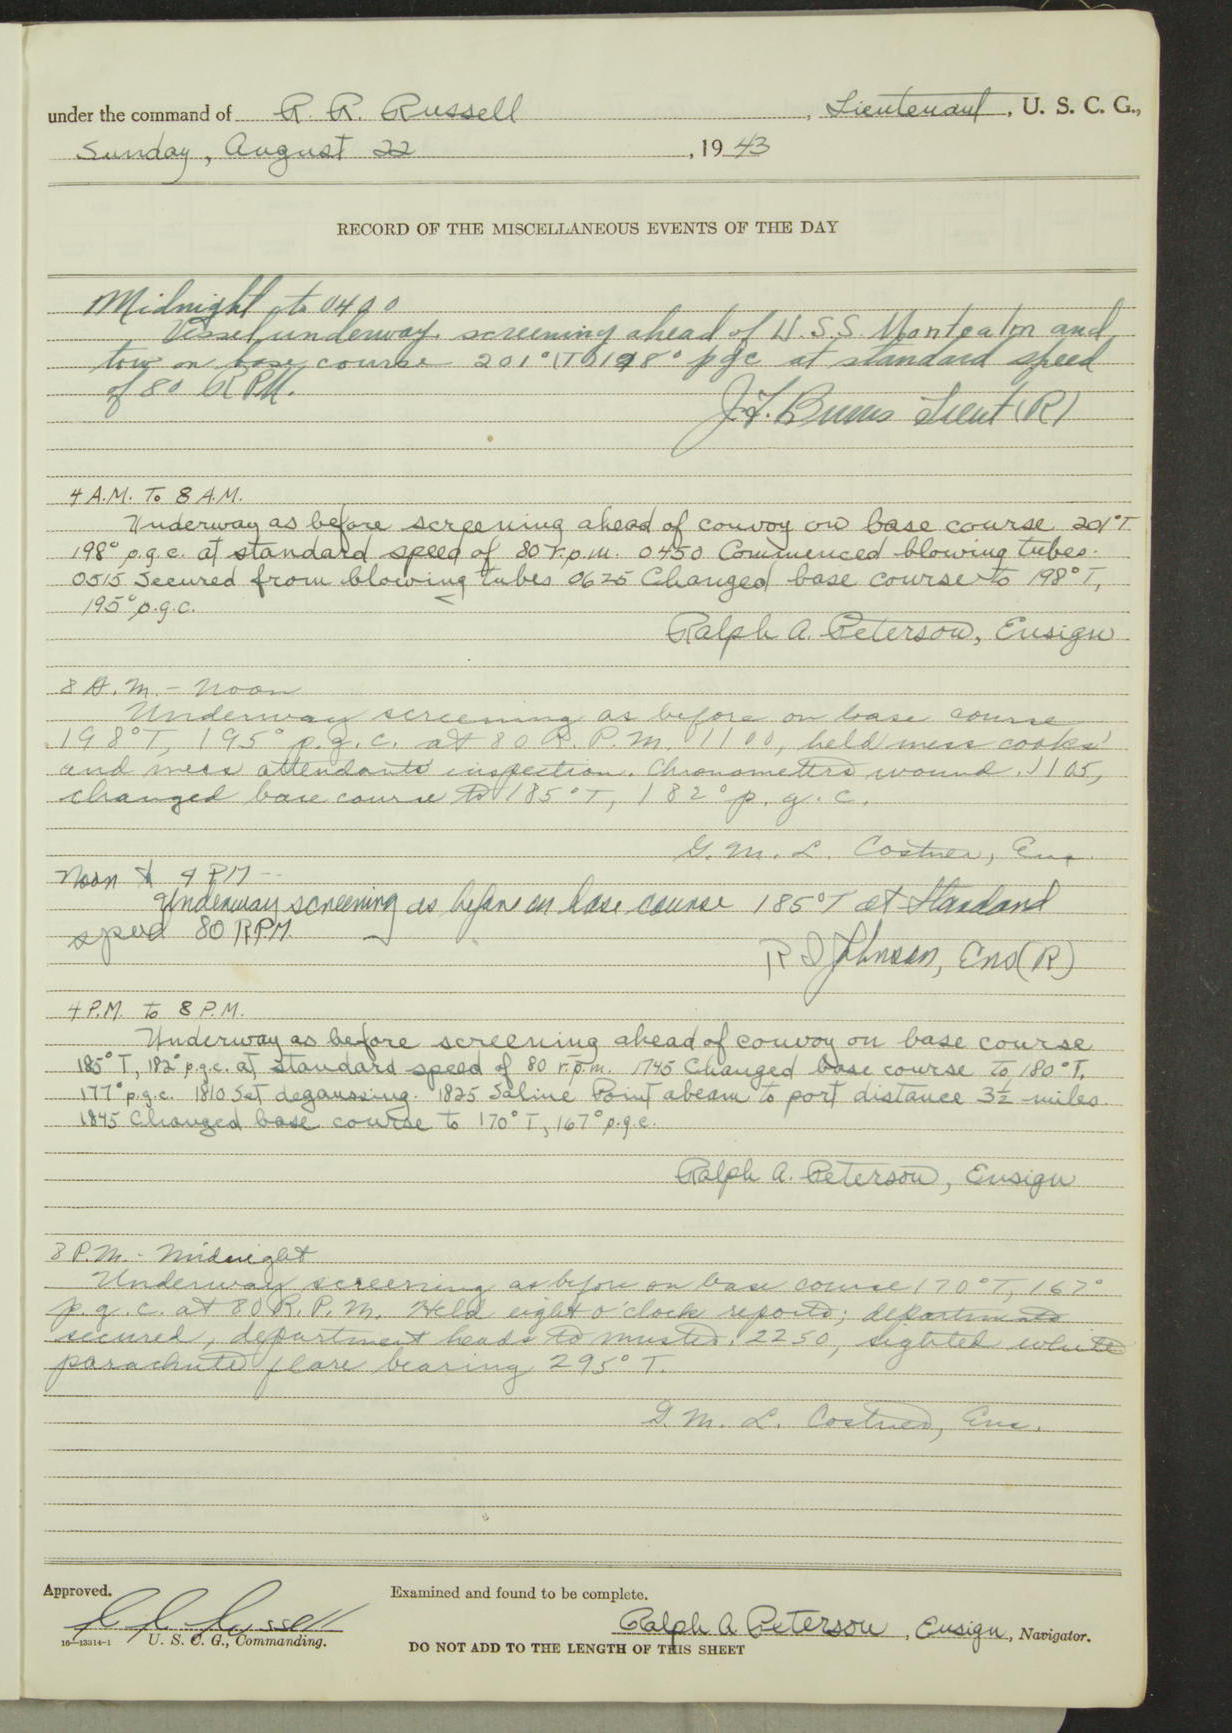 under the command of R. R. Russell, Lieutenant, U. S. C. G.,
Sunday, August 22, 1943
RECORD OF THE MISCELLANEOUS EVENTS OF THE DAY
Midnight to 0400
Vessel underway screening ahead of U.S.S. Montcalm and
tow on base course 201°(T) 198° pgc at standard speed
of 80 RPM.
J.F. Burns Lieut (R)
4 A.M. To 8 A.M.
Underway as before screening ahead of convoy on base course 201°T
198° p.g.c. at standard speed of 80 r.p.m. 0450 Commenced blowing tubes.
0515 Secured from blowing tubes 0625 Changed base course to 198°T,
195° p.g.c.
Ralph A. Peterson, Ensign
8 A.M. - Noon
Underway screening as before on base course
198°T, 195° p.g.c. at 80 R.P.M. 1100, held mess cooks'
and mess attendants' inspection. Chronometers wound. 1105,
changed base course to 185°T, 182° p.g.c.
G. M. L. Costner, Ens.
Noon to 4 PM --
Underway screening as before on base course 185°T at Standard
speed 80 RPM.
R D Johnson, Ens(R)
4 P.M. to 8 P.M.
Underway as before screening ahead of convoy on base course
185°T, 182° p.g.c. at standard speed of 80 r.p.m. 1745 Changed base course to 180°T,
177° p.g.c. 1810 Set degaussing. 1825 Saline Point abeam to port distance 3½ miles.
1845 Changed base course to 170°T, 167° p.g.c.
Ralph A. Peterson, Ensign
8 P.M. - Midnight
Underway screening as before on base course 170°T, 167°
p.g.c. at 80 R.P.M. Held eight o'clock reports; departments
secured, department heads to muster. 2250, sighted white
parachute flare bearing 295° T.
G. M. L. Costner, Ens.
Approved. Examined and found to be complete.
R R Russell Ralph A Peterson, Ensign, Navigator.
16—13314-1 U. S. C. G., Commanding.
DO NOT ADD TO THE LENGTH OF THIS SHEET